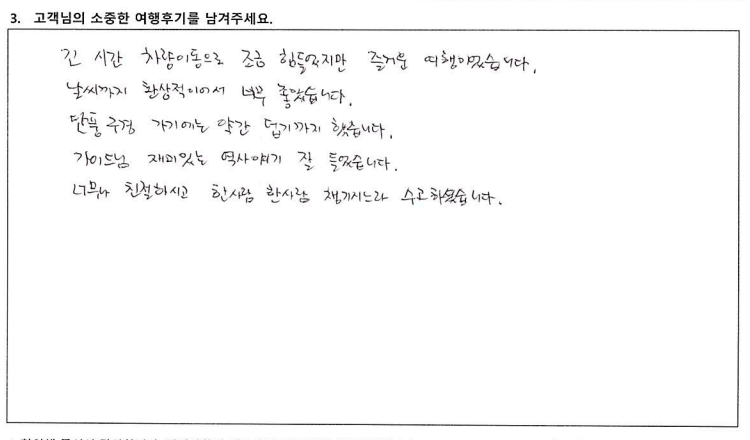 3. 고객님의 소중한 여행후기를 남겨주세요.
긴 시간 차량이동으로 조금 힘들었지만 즐거운 여행이었습니다.
날씨까지 환상적이어서 너무 좋았습니다.
단풍구경 가기에는 약간 덥기까지 했습니다.
가이드님 재미있는 역사얘기 잘 들었습니다.
너무나 친절하시고 한사람 한사람 챙기시느라 수고하셨습니다.